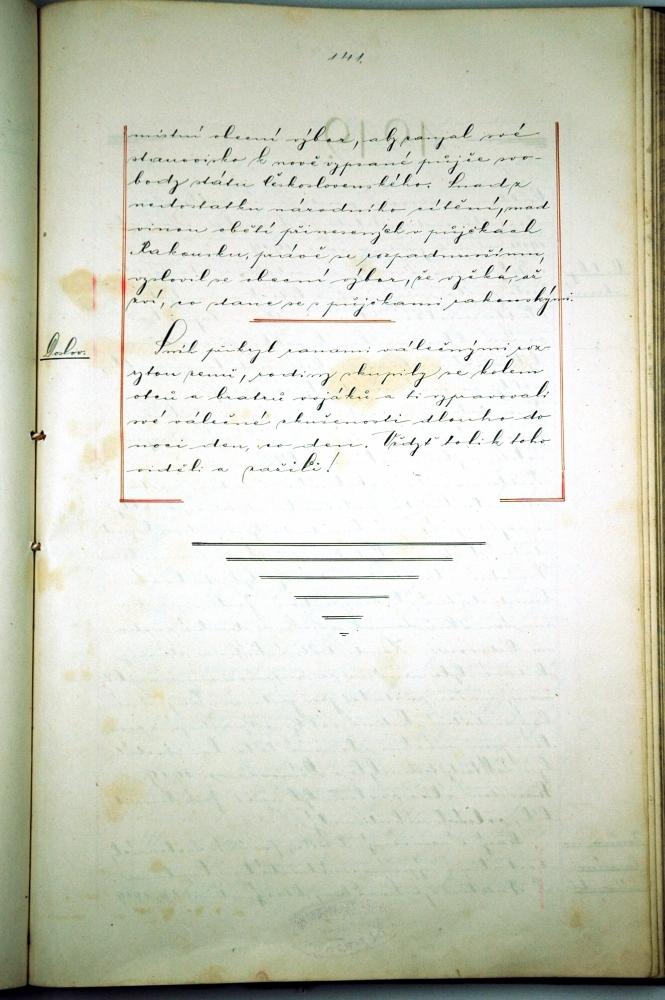 141.
místní obecní výbor, aby zaujal své
stanovisko k nově vypsané půjčce svo-
body státu Československého. Snad z
nedostatku národního cítění, snad
vinou obětí přinesených v půjčkách
Rakousku, právě se rozpadnuvšímu,
vyslovil se obecní výbor, že vyčká, až
zví, co stane se s půjčkami rakouskými.
Doslov.
Sníh přikryl ranami válečnými roz-
rytou zemi, rodiny skupily se kolem
otců a bratrů vojáků a ti vypravovali
své válečné zkušenosti dlouho do
noci den, co den. Vždyť tolik toho
viděli a zažili!